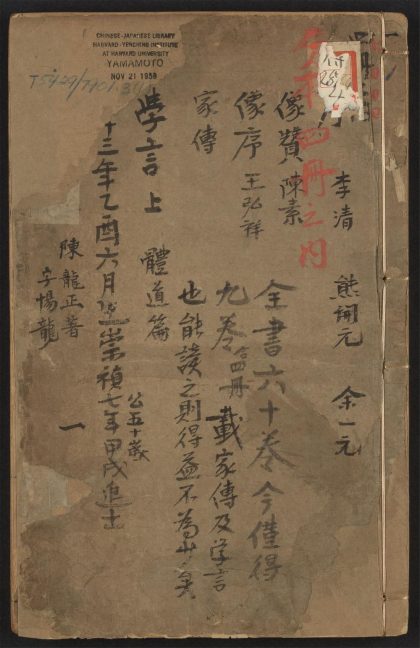 CHINESE-JAPANESE LIBRARY
HARVARD-YENCHING INSTITUTE
AT HARVARD UNIVERSITY
YAMAMOTO
NOV 21 1958
序 李清 熊開元 余一元
四冊之內
像贊 陳素
像序 王弘祥
家傳
全書六十卷今僅得
九卷 四冊 載家傳及学言
也能讀之則得益不為少矣
學言上 體道篇
公五十歲
十三年乙酉六月 崇禎七年甲戌進士
陳龍正著
字惕龍
一